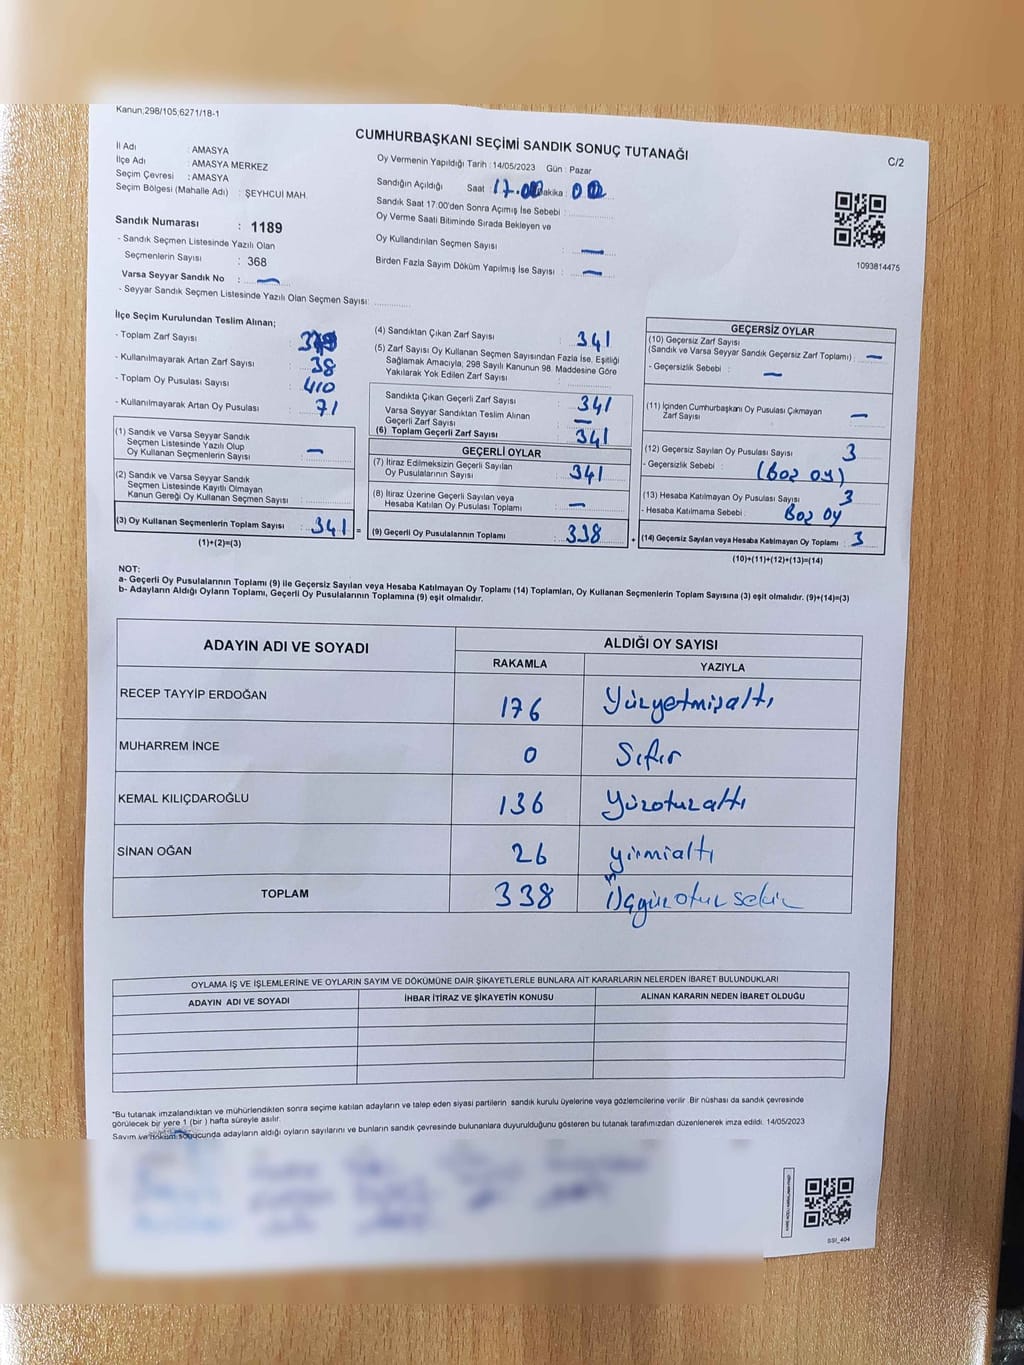 Kanun;298/105;6271/18-1
CUMHURBAŞKANI SEÇİMİ SANDIK SONUÇ TUTANAĞI
C/2
İl Adı : AMASYA
İlçe Adı : AMASYA MERKEZ
Seçim Çevresi : AMASYA
Seçim Bölgesi (Mahalle Adı) : ŞEYHCUİ MAH.
Sandık Numarası : 1189
- Sandık Seçmen Listesinde Yazılı Olan
Seçmenlerin Sayısı : 368
Varsa Seyyar Sandık No : —
- Seyyar Sandık Seçmen Listesinde Yazılı Olan Seçmen Sayısı:
Oy Vermenin Yapıldığı Tarih : 14/05/2023 Gün : Pazar
Sandığın Açıldığı Saat : 17.00 Dakika : 00
Sandık Saat 17:00'den Sonra Açımış İse Sebebi :
Oy Verme Saati Bitiminde Sırada Bekleyen ve
Oy Kullandırılan Seçmen Sayısı : —
Birden Fazla Sayım Döküm Yapılmış İse Sayısı : —
1093814475
İlçe Seçim Kurulundan Teslim Alınan;
- Toplam Zarf Sayısı :
- Kullanılmayarak Artan Zarf Sayısı : 38
- Toplam Oy Pusulası Sayısı : 410
- Kullanılmayarak Artan Oy Pusulası : 71
(1) Sandık ve Varsa Seyyar Sandık
Seçmen Listesinde Yazılı Olup
Oy Kullanan Seçmenlerin Sayısı : —
(2) Sandık ve Varsa Seyyar Sandık
Seçmen Listesinde Kayıtlı Olmayan
Kanun Gereği Oy Kullanan Seçmen Sayısı :
(3) Oy Kullanan Seçmenlerin Toplam Sayısı : 341 =
(1)+(2)=(3)
(4) Sandıktan Çıkan Zarf Sayısı : 341
(5) Zarf Sayısı Oy Kullanan Seçmen Sayısından Fazla İse, Eşitliği
Sağlamak Amacıyla; 298 Sayılı Kanunun 98. Maddesine Göre
Yakılarak Yok Edilen Zarf Sayısı :
Sandıkta Çıkan Geçerli Zarf Sayısı : 341
Varsa Seyyar Sandıktan Teslim Alınan
Geçerli Zarf Sayısı : —
(6) Toplam Geçerli Zarf Sayısı : 341
GEÇERLİ OYLAR
(7) İtiraz Edilmeksizin Geçerli Sayılan
Oy Pusulalarının Sayısı : 341
(8) İtiraz Üzerine Geçerli Sayılan veya
Hesaba Katılan Oy Pusulası Toplamı : —
(9) Geçerli Oy Pusulalarının Toplamı : 338 +
GEÇERSİZ OYLAR
(10) Geçersiz Zarf Sayısı
(Sandık ve Varsa Seyyar Sandık Geçersiz Zarf Toplamı) : —
- Geçersizlik Sebebi : —
(11) İçinden Cumhurbaşkanı Oy Pusulası Çıkmayan
Zarf Sayısı : —
(12) Geçersiz Sayılan Oy Pusulası Sayısı : 3
- Geçersizlik Sebebi : (Boş oy)
(13) Hesaba Katılmayan Oy Pusulası Sayısı : 3
- Hesaba Katılmama Sebebi : Boş oy
(14) Geçersiz Sayılan veya Hesaba Katılmayan Oy Toplamı : 3
(10)+(11)+(12)+(13)=(14)
NOT:
a- Geçerli Oy Pusulalarının Toplamı (9) ile Geçersiz Sayılan veya Hesaba Katılmayan Oy Toplamı (14) Toplamları, Oy Kullanan Seçmenlerin Toplam Sayısına (3) eşit olmalıdır. (9)+(14)=(3)
b- Adayların Aldığı Oyların Toplamı, Geçerli Oy Pusulalarının Toplamına (9) eşit olmalıdır.
ADAYIN ADI VE SOYADI ALDIĞI OY SAYISI
RAKAMLA YAZIYLA
RECEP TAYYİP ERDOĞAN 176 Yüzyetmişaltı
MUHARREM İNCE 0 Sıfır
KEMAL KILIÇDAROĞLU 136 Yüzotuzaltı
SİNAN OĞAN 26 yirmialtı
TOPLAM 338 Üçyüzotuzsekiz
OYLAMA İŞ VE İŞLEMLERİNE VE OYLARIN SAYIM VE DÖKÜMÜNE DAİR ŞİKAYETLERLE BUNLARA AİT KARARLARIN NELERDEN İBARET BULUNDUKLARI
ADAYIN ADI VE SOYADI İHBAR İTİRAZ VE ŞİKAYETİN KONUSU ALINAN KARARIN NEDEN İBARET OLDUĞU
*Bu tutanak imzalandıktan ve mühürlendikten sonra seçime katılan adayların ve talep eden siyasi partilerin sandık kurulu üyelerine veya gözlemcilerine verilir. Bir nüshası da sandık çevresinde
görülecek bir yere 1 (bir ) hafta süreyle asılır.
Sayım ve döküm sonucunda adayların aldığı oyların sayılarını ve bunların sandık çevresinde bulunanlara duyurulduğunu gösteren bu tutanak tarafımızdan düzenlenerek imza edildi. 14/05/2023
SSI_404